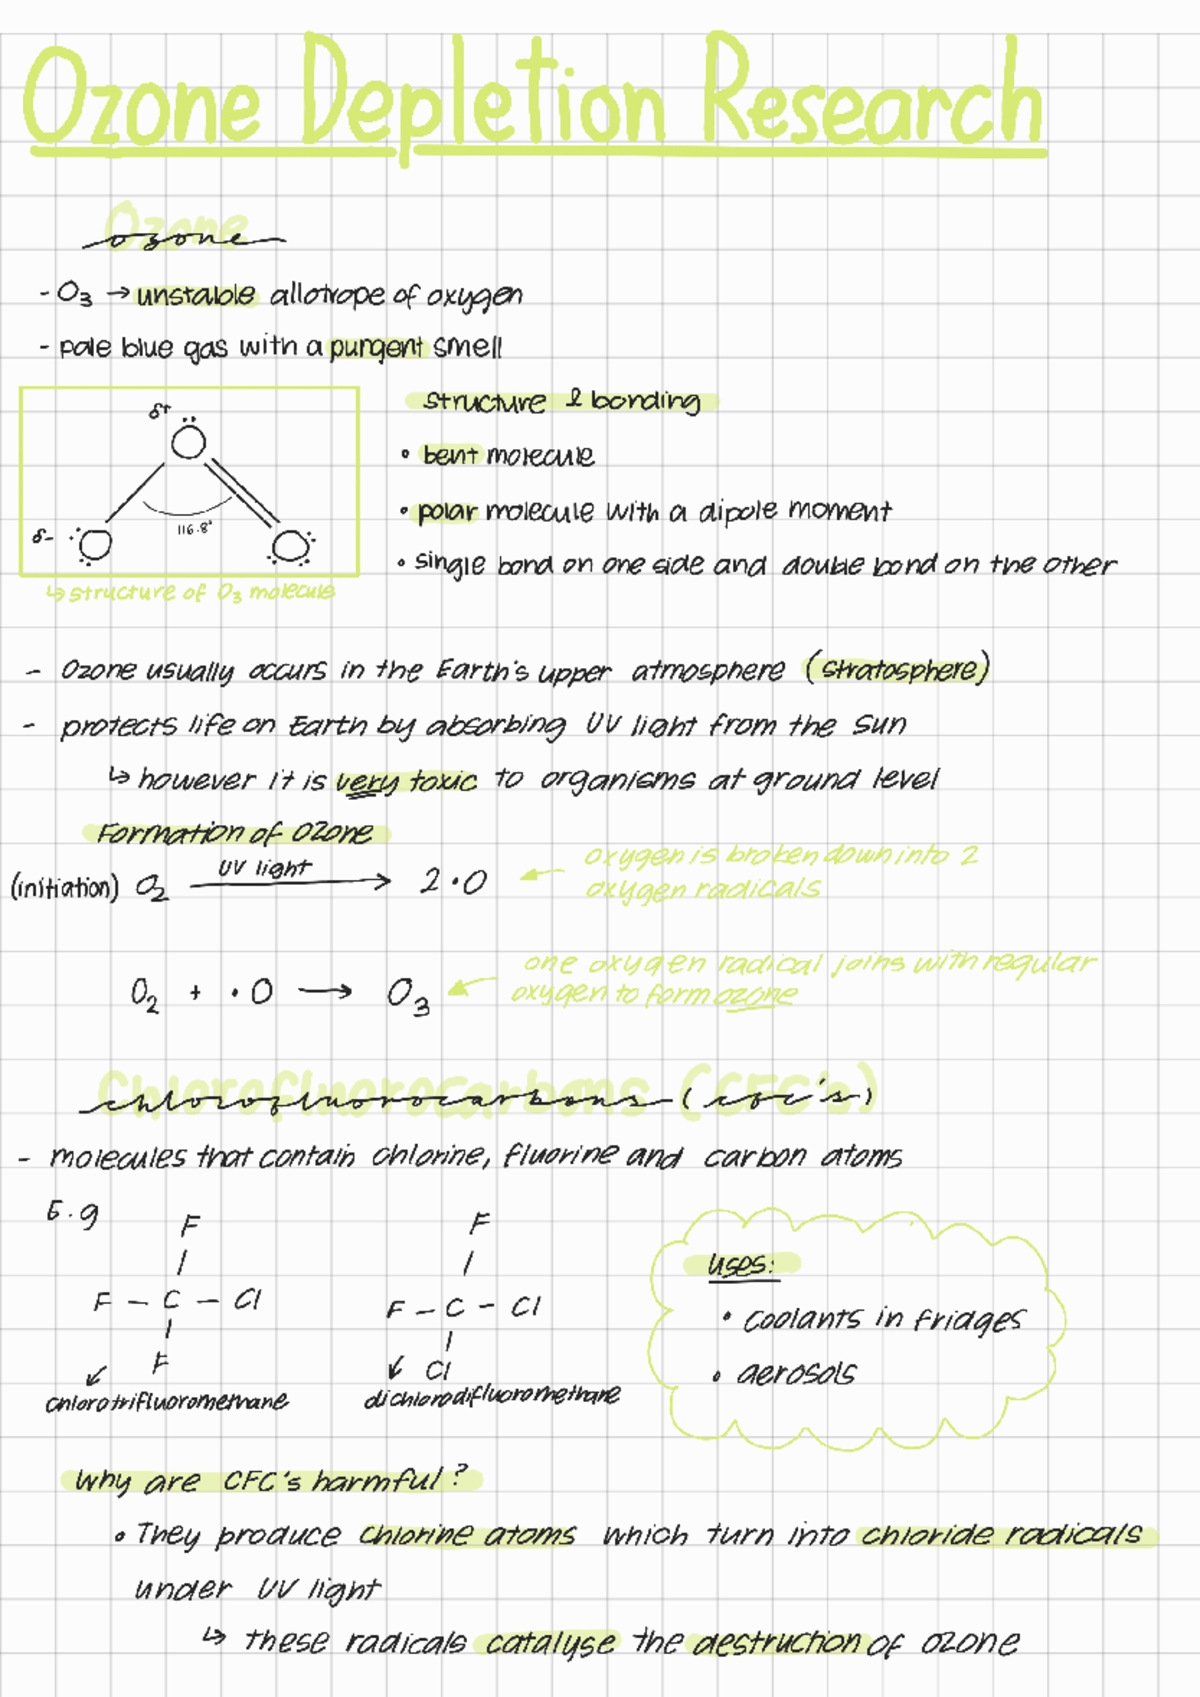 Ozone Depletion Research
Ozone
ozone
- O₃ → unstable allotrope of oxygen
- pale blue gas with a purgent smell
δ+
116.8°
δ-
↳ structure of O₃ molecule
structure & bonding
• bent molecule
• polar molecule with a dipole moment
• single bond on one side and double bond on the other
- Ozone usually occurs in the Earth's upper atmosphere (stratosphere)
- protects life on Earth by absorbing UV light from the sun
↳ however it is very toxic to organisms at ground level
Formation of Ozone
(initiation) O₂ UV light → 2•O
← oxygen is broken down into 2
oxygen radicals
O₂ + •O → O₃
← one oxygen radical joins with regular
oxygen to form ozone
Chlorofluorocarbons (CFC's)
chlorofluorocarbons (cfc's)
- molecules that contain chlorine, fluorine and carbon atoms
E.g
F
F – C – Cl
F
chlorotrifluoromethane
F
F – C – Cl
Cl
dichlorodifluoromethane
uses:
• coolants in fridges
• aerosols
Why are CFC's harmful?
• They produce chlorine atoms which turn into chloride radicals
under UV light
↳ these radicals catalyse the destruction of ozone